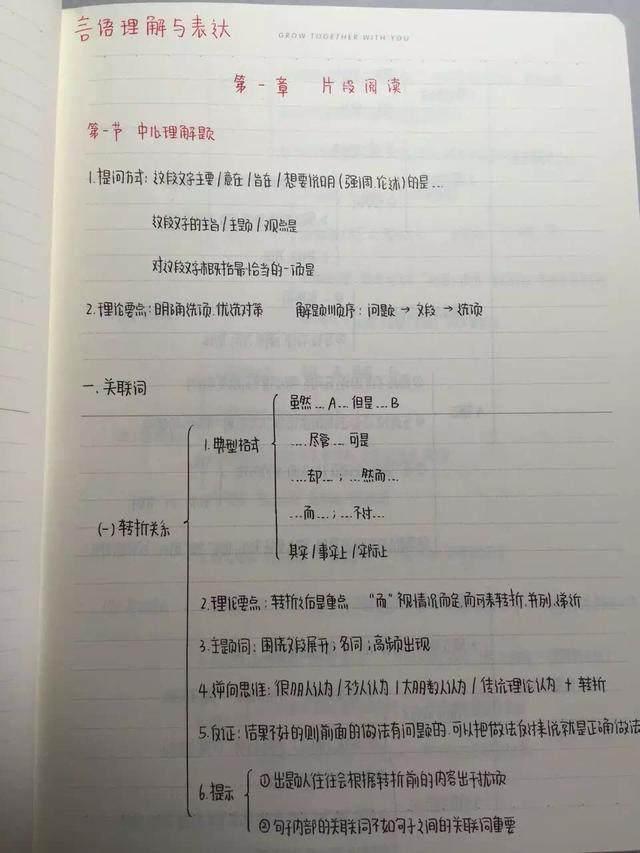 言语理解与表达
GROW TOGETHER WITH YOU
第一章 片段阅读
第一节 中心理解题
1.提问方式：这段文字主要/意在/旨在/想要说明(强调.论述)的是...
这段文字的主旨/主题/观点是
对这段文字概括最恰当的一项是
2.理论要点：明确选项.优选对策 解题顺序：问题→文段→选项
一.关联词
(一)转折关系
1.典型格式
虽然...A...但是...B
....尽管...可是
....却...；...然而...
...而...；...不过...
其实/事实上/实际上
2.理论要点：转折之后是重点 “而”视情况而定.而可表转折.并列.递近
3.主题词：围绕文段展开；名词；高频出现
4.逆向思维：很多人认为/不少人认为/大多数人认为/传统理论认为 + 转折
5.反证：结果不好的则前面的做法有问题的.可以把做法反过来说就是正确做法
6.提示
①出题人往往会根据转折前的内容出干扰项
②句子内部的关联词不如句子之间的关联词重要